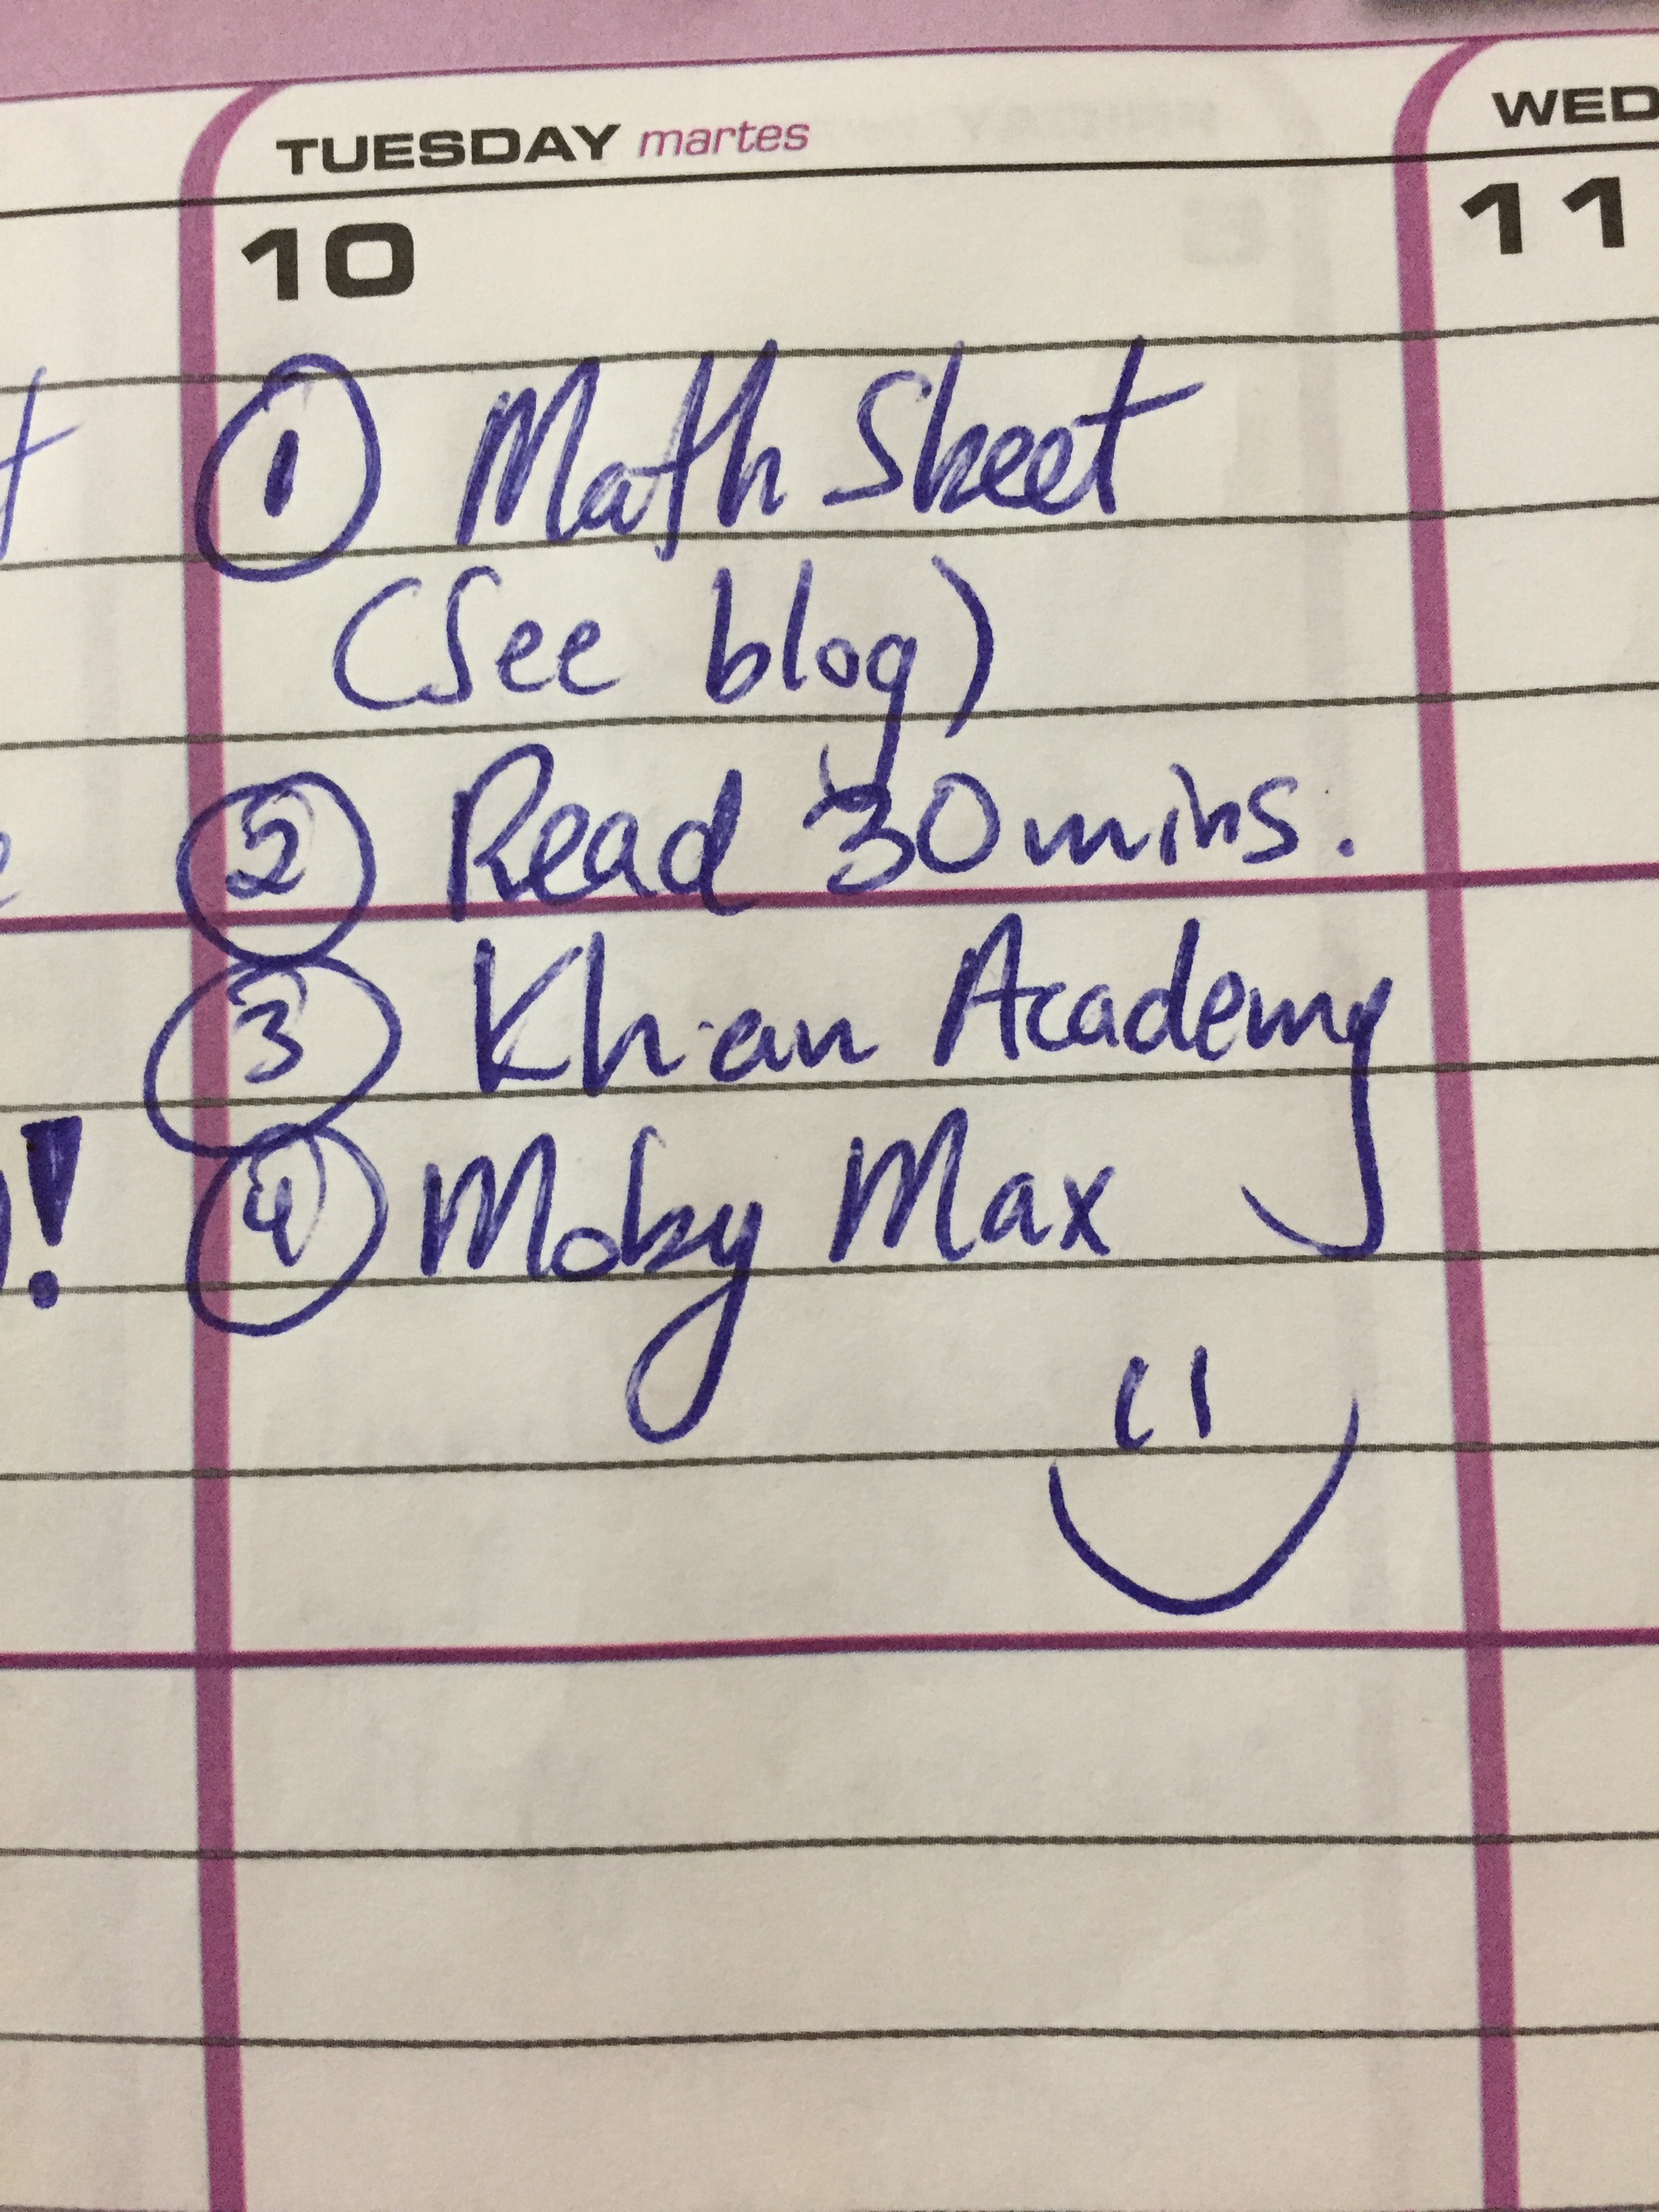 TUESDAY martes
WED
10
11
① Math Sheet
(See blog)
② Read 30 mins.
③ Khan Academy
④ Moby Max
!